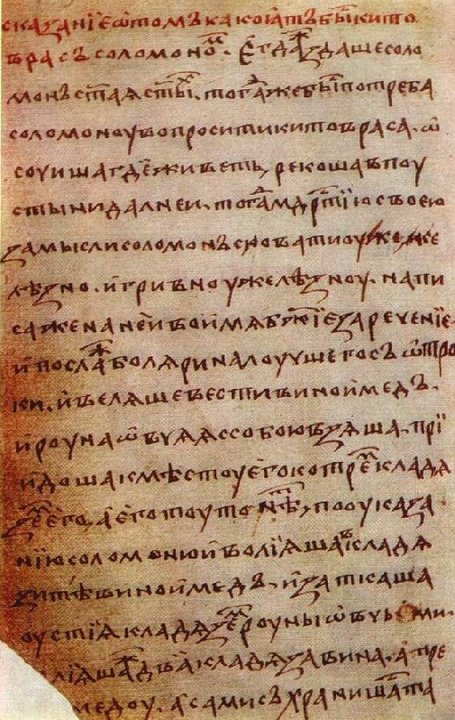 сказанїе ѡ томъ како ꙗтъ бы́ кито
врасъ соломоно́. Егда́ здаше соло
монъ ст҃аꙗ ст҃ы́. тога́ же бы́ потреба
соломоноу вопросити китовраса. ѡ
соуи шагде живеть, рекоша в поу
стыни далнеи. тога́ мдр҃тїю своею
замысли соломонъ сковати оуже же
лѣзно. и гривноу желѣзноу. напи
са же на неи во имѧ бж҃їе заречение
и посла́ болѧрина лоуушего съ ѡтро
ки. и велѧше вести вино и медъ.
и роуна ѡвчаꙗ с собою взѧша. прї
идоша к мѣстоу его ко тре́ кладѧ
зе́ его, а его тоу то нѣ́, по оуказа
нїю соломоню и волїꙗша́ в кладѧ
зи тѣ вино и медъ. и заткаша
оустїꙗ кладѧзе́ роуны ѡвчьими.
лїꙗша́ два кладѧзѧ вина. а тре
медоу. а сами съхранишасѧ